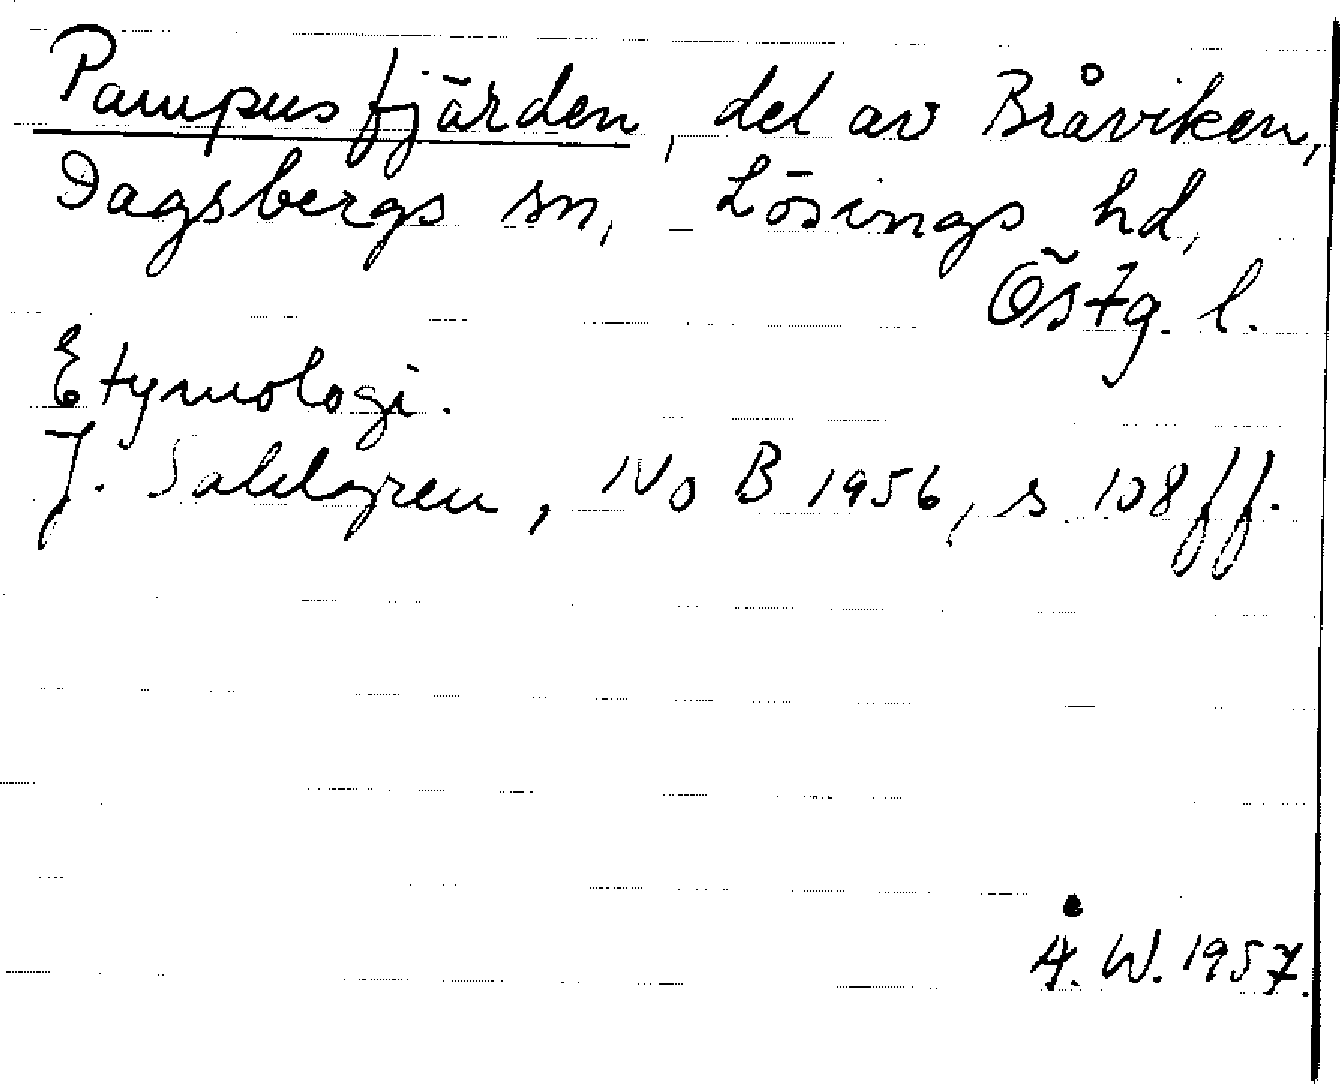 Pampusfjärden, del av Bråviken,
Dagsbergs sn, Lösings hd,
Östg. l.
Etymologi.
J. Sahlgren, NoB 1956, s. 108 ff.
Å. W. 1957.